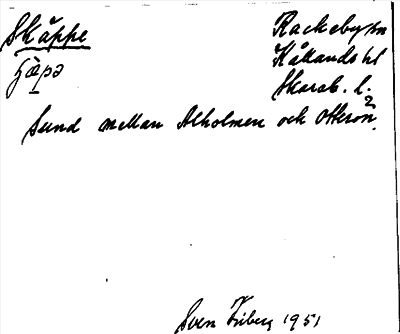 Skäppe
Rackeby sn
Kållands hd
Skarab. l.
Sund mellan Alholmen och Otterön.
2
Sven Friberg 1951